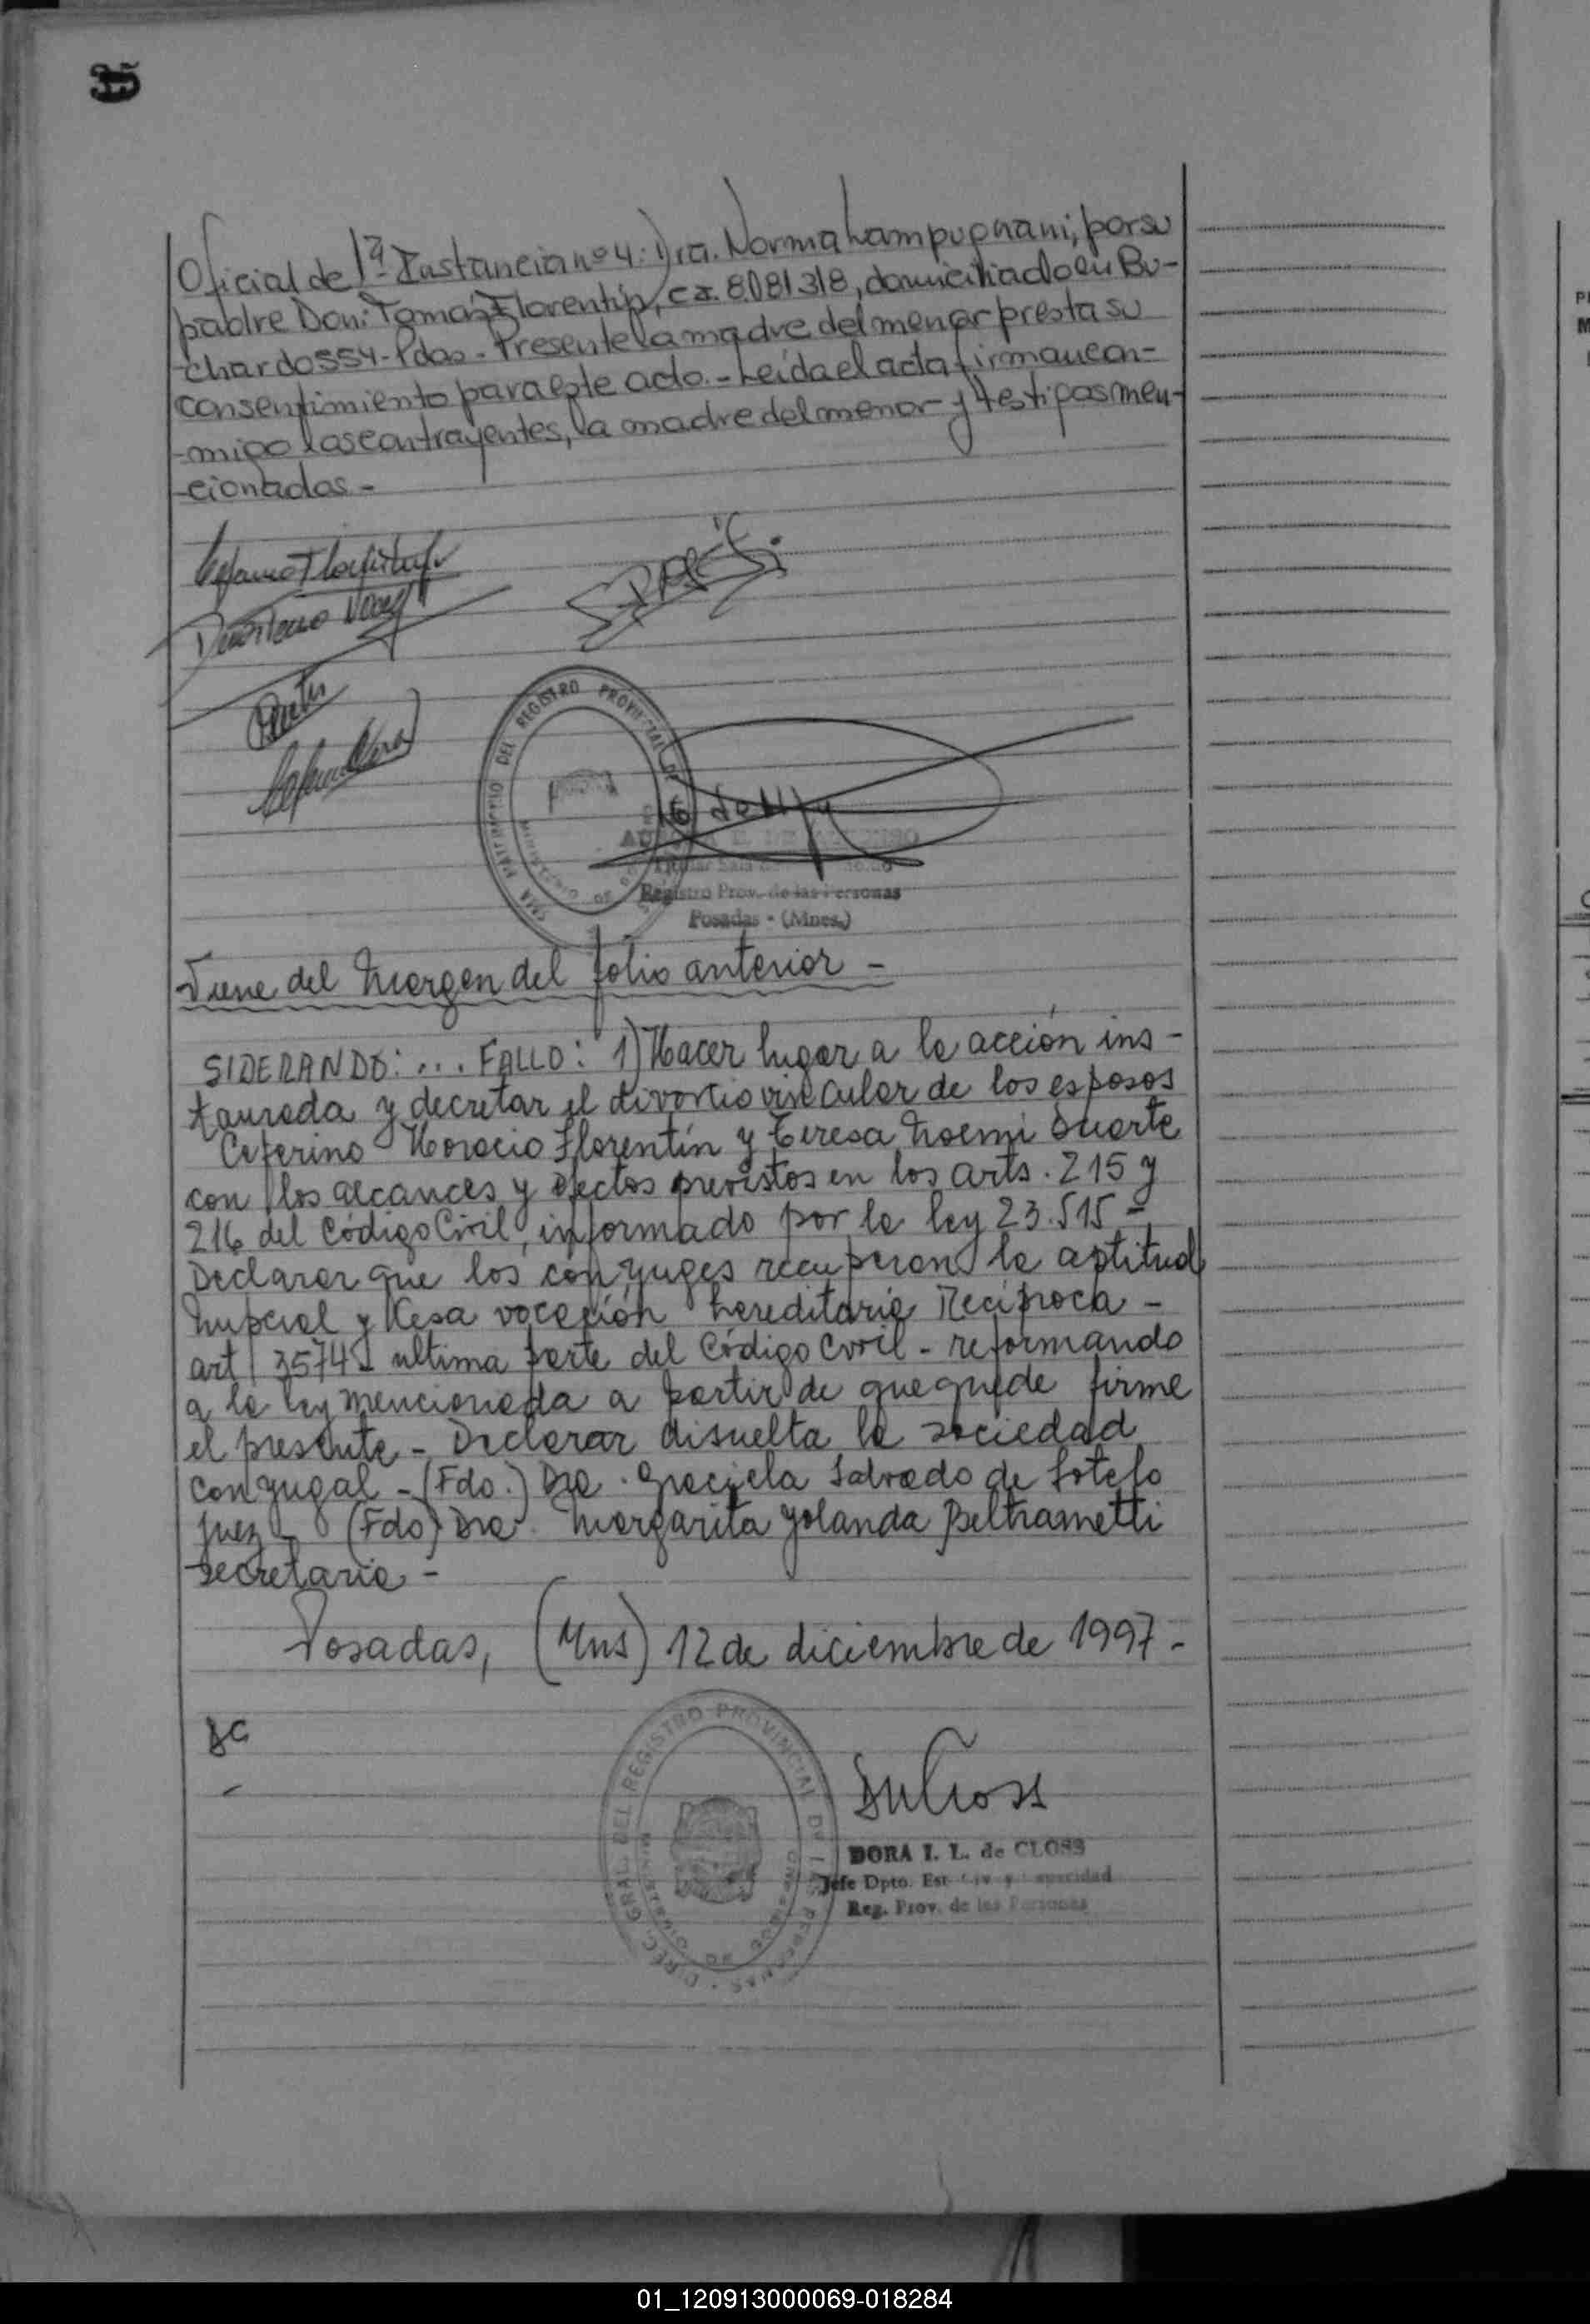 35
Oficial de 1ª Instancia nº 4: Dra. Norma Lampugnani; por su
padre Don: Tomás Florentín, C.I. 8081318, domiciliado en Bu-
-chardo 554 - Pdas - Presente la madre del menor presta su
consentimiento para este acto. - Leída el acta firman con-
-migo los contrayentes, la madre del menor y testigos men-
-cionados -
DEL REGISTRO PROVINCIAL DE
Registro Prov. de las Personas
Posadas - (Mnes.)
Viene del Margen del folio anterior -
SIDERANDO: ... FALLO: 1) Hacer lugar a la acción ins -
taurada y decretar el divorcio vincular de los esposos
Ceferino Horacio Florentín y Teresa Noemi Duarte
con los alcances y efectos previstos en los arts. 215 y
216 del Código Civil, informado por la ley 23.515 -
Declarar que los conyuges recuperan la aptitud
Nupcial y Cesa vocación hereditaria Recíproca -
art 3574 - ultima parte del Código Civil - reformando
a la ley mencionada a partir de que quede firme
el presente - Declarar disuelta la sociedad
conyugal - (Fdo.) Dra. Graciela Salvado de Sotelo
juez - (Fdo) Dra. Margarita Yolanda Beltrametti
secretaria -
Posadas, (Mns) 12 de diciembre de 1997 -
DIREC. GRAL. DEL REGISTRO PROVINCIAL DE LAS PERSONAS
DORA I. L. de CLOSS
Jefe Dpto. Est.
Reg. Prov. de las Personas
01_120913000069-018284